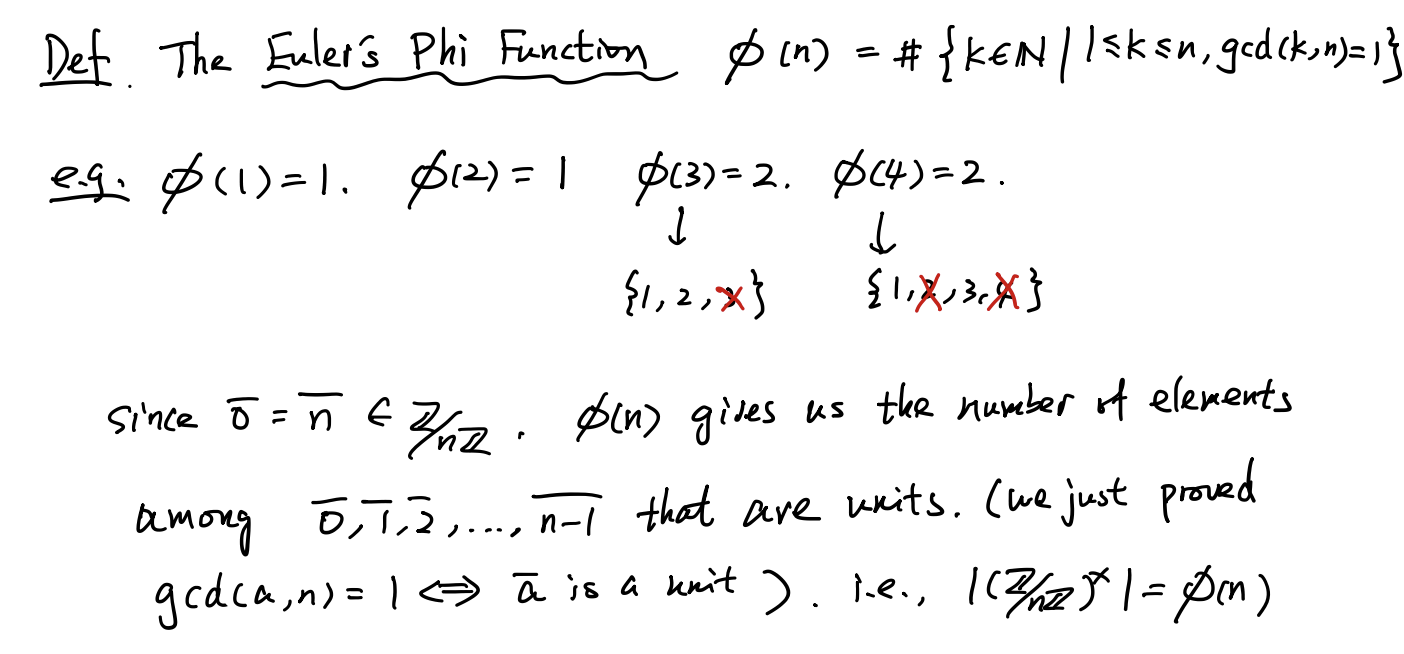 Def. The Euler's Phi Function ϕ(n) = # {k∈ℕ | 1≤k≤n, gcd(k,n)=1}
e.g. ϕ(1)=1. ϕ(2)=1 ϕ(3)=2. ϕ(4)=2.
↓ ↓
{1, 2, 3} {1, 2, 3, 4}
since 0̅ = n̅ ∈ ℤ/nℤ. ϕ(n) gives us the number of elements
among 0̅, 1̅, 2̅, ..., n-1̅ that are units. (we just proved
gcd(a,n) = 1 ⟺ a̅ is a unit). i.e., |(ℤ/nℤ)^×| = ϕ(n)